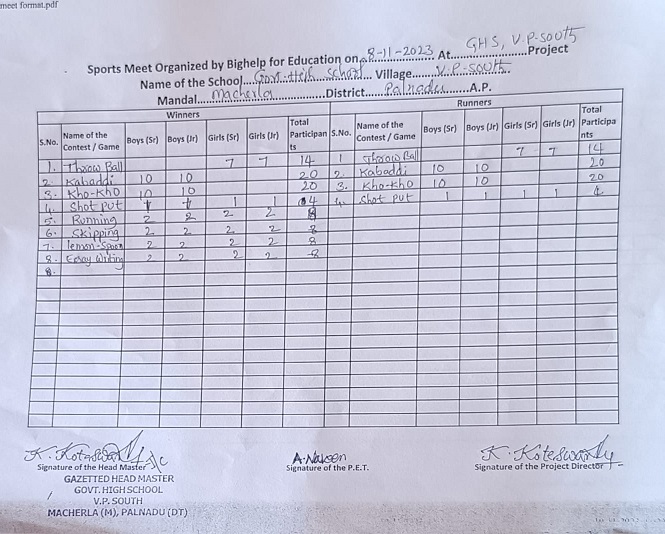 meet format.pdf
Sports Meet Organized by Bighelp for Education on 8-11-2023 At GHS, V.P-South Project
Name of the School Govt. High School Village V.P-South
Mandal Macherla District Palnadu A.P.
Winners Runners
S.No. Name of the Contest / Game Boys (Sr) Boys (Jr) Girls (Sr) Girls (Jr) Total Participants S.No. Name of the Contest / Game Boys (Sr) Boys (Jr) Girls (Sr) Girls (Jr) Total Participants
1. Throw Ball 7 7 14 1 Throw Ball 7 7 14
2. Kabaddi 10 10 20 2. Kabaddi 10 10 20
3. Kho-Kho 10 10 20 3. Kho-kho 10 10 20
4. Shot put 1 1 1 1 04 4. Shot put 1 1 1 1 4
5. Running 2 2 2 2 8
6. Skipping 2 2 2 2 8
7. lemon-Spoon 2 2 2 2 8
8. Essay Writing 2 2 2 2 8
K. Koteswar A. Naveen K. Koteswar
Signature of the Head Master Signature of the P.E.T. Signature of the Project Director
GAZETTED HEAD MASTER
GOVT. HIGH SCHOOL
V.P. SOUTH
MACHERLA (M), PALNADU (DT)